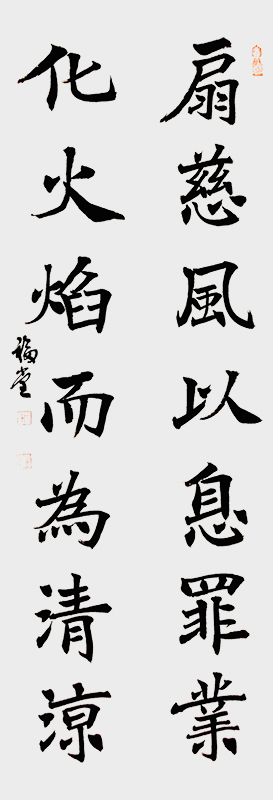 扇慈風以息罪業
化火焰而為清涼
福堂